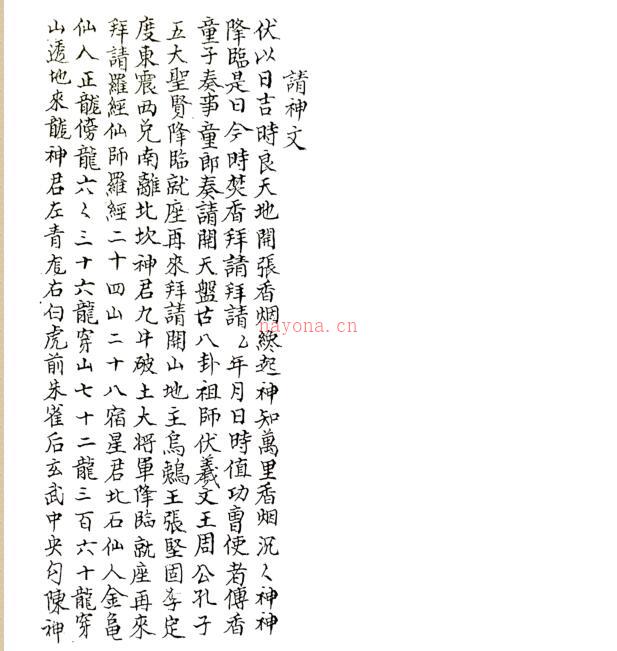 請神文
伏以日吉時良天地開張香烟繞起神知萬里香烟沉〻神神
降臨是日今時焚香拜請拜請〻年月日時值功曹使者傳香
童子奏事童郎奏請開天盤古八卦祖師伏羲文王周公孔子
五大聖賢降臨就座再來拜請開山地主烏鶇王張堅固李定
度東震西兌南離北坎神君九牛破土大將軍降臨就座再來
拜請羅經仙師羅經二十四山二十八宿星君北石仙人金龜
仙人正龍傍龍六〻三十六龍穿山七十二龍三百六十龍穿
山透地來龍神君左青龙右白虎前朱雀后玄武中央勾陳神
nayona.cn